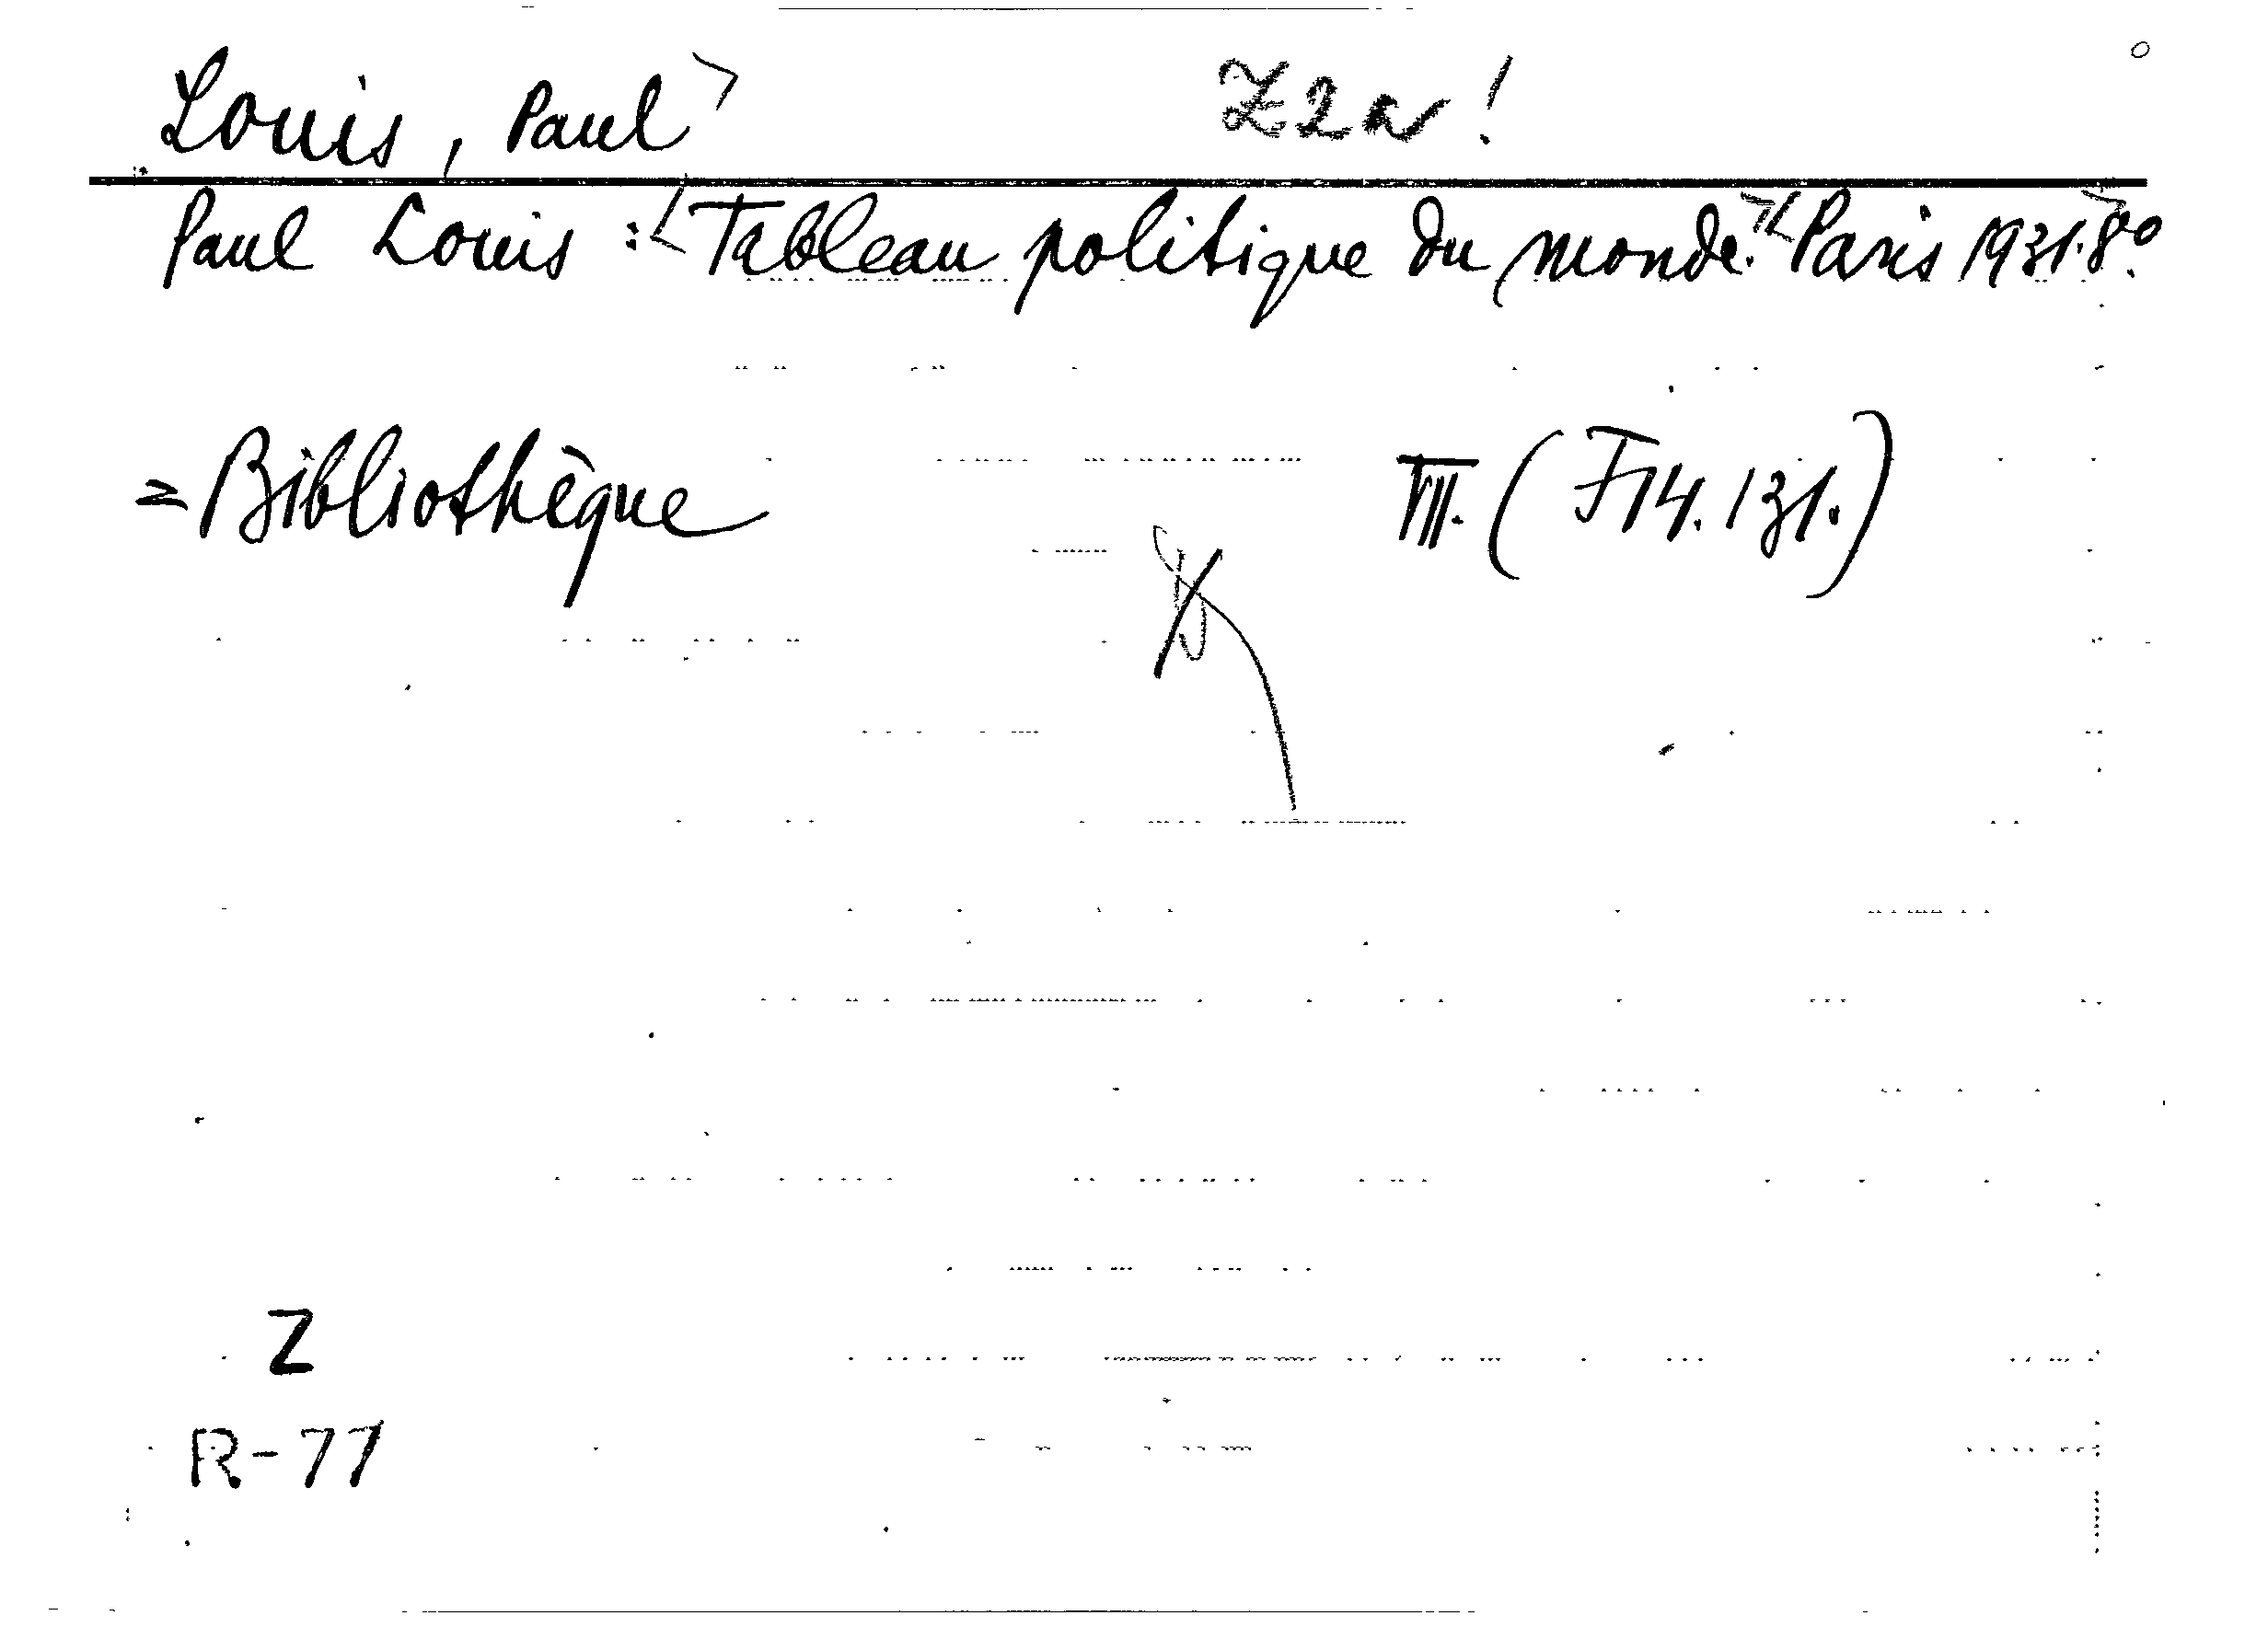 Louis, Paul> Z2a!
Paul Louis :<Tableau politique du monde.><Paris 1931.> 8°.
=Bibliothèque III. (F14.131.)
Z
R-77